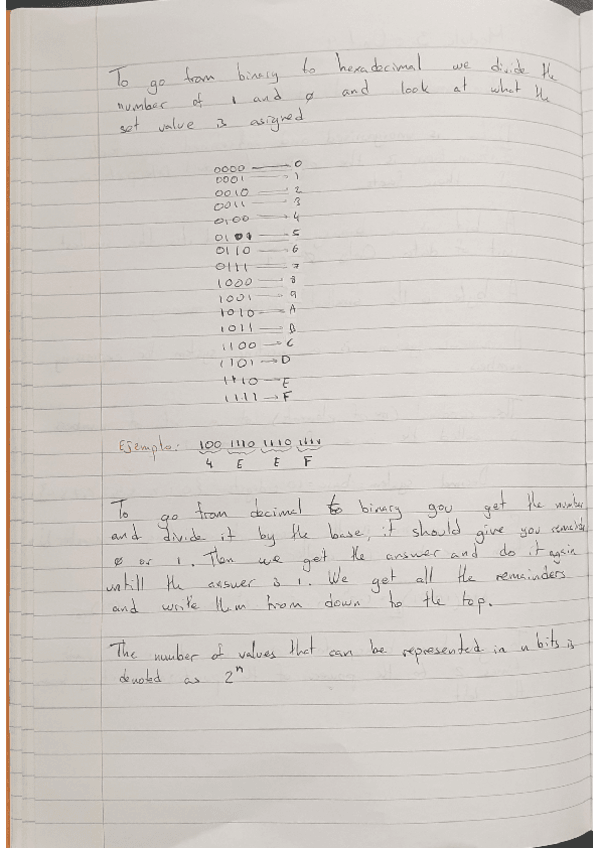 To go from binary to hexadecimal we divide the
number of 1 and ø and look at what the
set value is asigned
0000 — 0
0001 — 1
0010 — 2
0011 — 3
0100 — 4
0101 — 5
0110 — 6
0111 — 7
1000 — 8
1001 — 9
1010 — A
1011 — B
1100 — C
1101 → D
1110 — E
1111 → F
Ejemplo: 100 1110 1110 1111
4 E E F
To go from decimal to binary you get the number
and divide it by the base, it should give you remainder
ø or 1. Then we get the answer and do it again
untill the answer is 1. We get all the remainders
and write them from down to the top.
The number of values that can be represented in n bits is
denoted as 2ⁿ